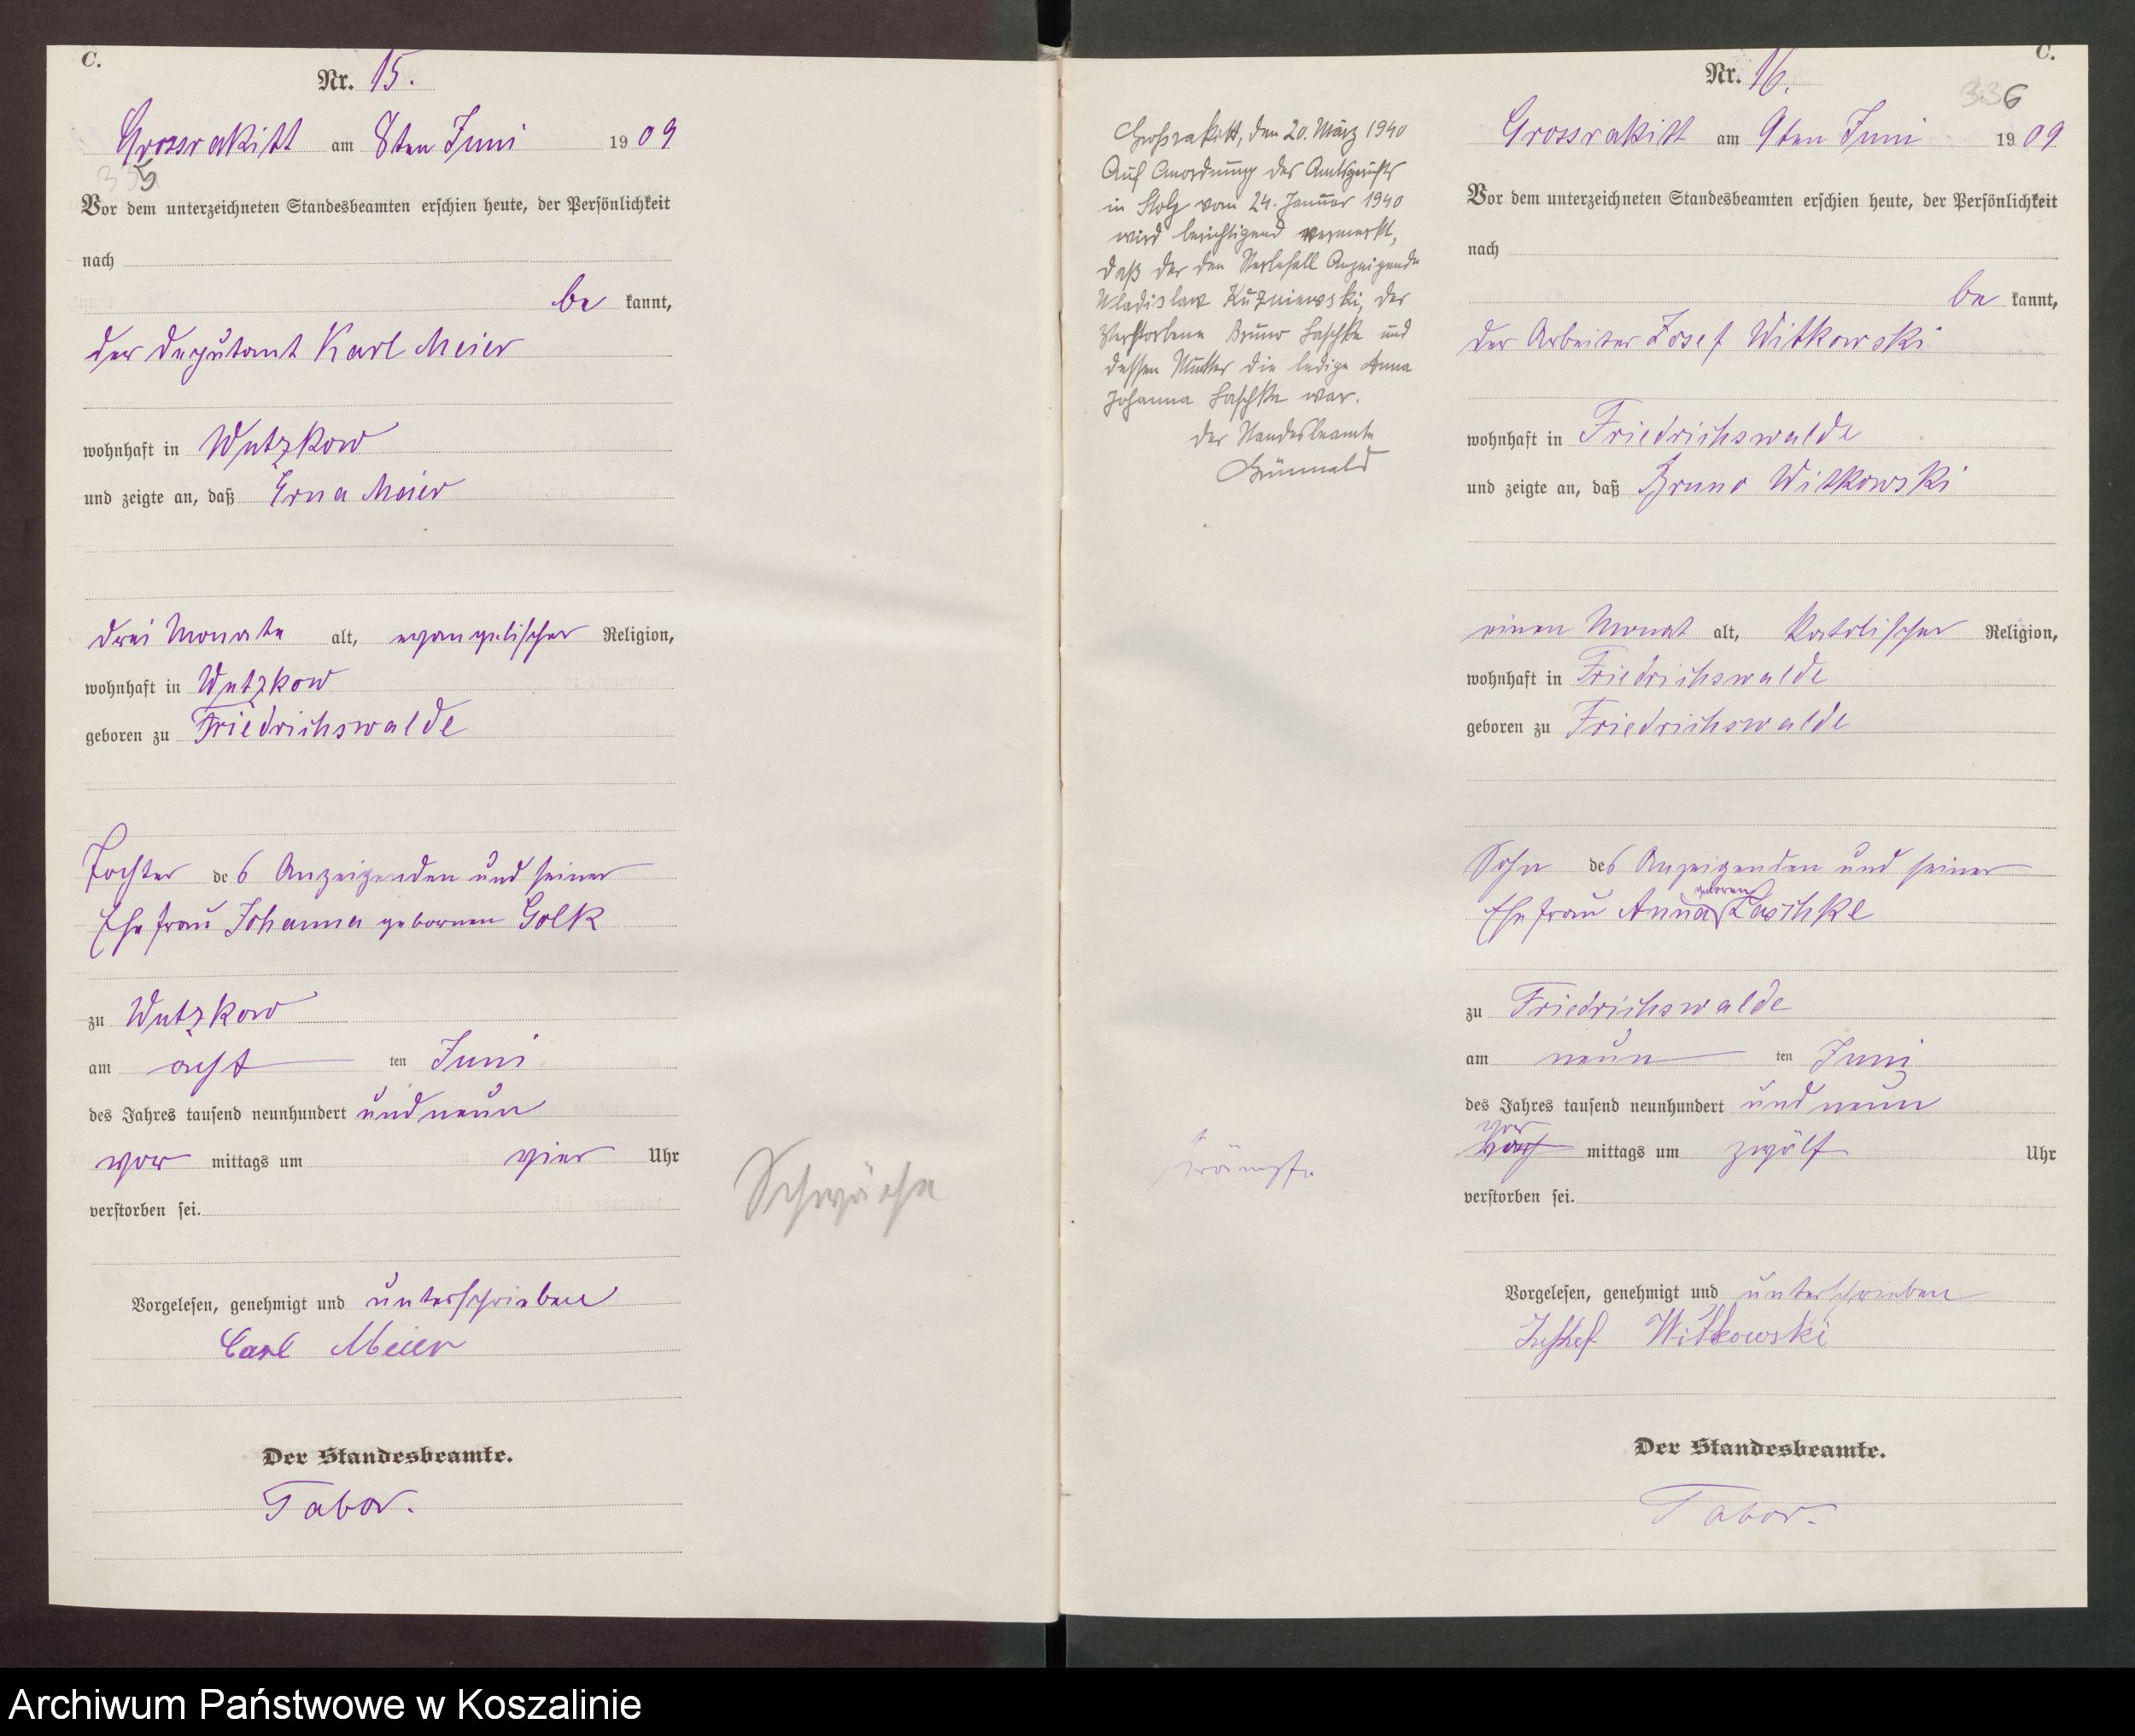 C.
Nr. 15.
Grossrakitt am 8ten Juni 1909
335
Vor dem unterzeichneten Standesbeamten erschien heute, der Persönlichkeit
nach
be kannt,
der Deputant Karl Meier
wohnhaft in Wutzkow
und zeigte an, daß Erna Meier
drei Monate alt, evangelischer Religion,
wohnhaft in Wutzkow
geboren zu Friedrichswalde
Tochter des Anzeigenden und seiner
Ehefrau Johanna geborenen Golk
zu Wutzkow
am acht ten Juni
des Jahres tausend neunhundert und neun
vor mittags um vier Uhr
verstorben sei.
Schwäche
Vorgelesen, genehmigt und unterschrieben
Carl Meier
Der Standesbeamte.
Tabor.
C.
Nr. 16.
336
Großrakitt, den 20. März 1940
Auf Anordnung des Amtsgerichts
in Stolp vom 24. Januar 1940
wird berichtigend vermerkt,
daß der den Sterbefall Anzeigende
Wladislaw Kuzniewski, der
Verstorbene Bruno Laschke und
dessen Mutter die ledige Anna
Johanna Laschke war.
Der Standesbeamte
Grünwald
Grossrakitt am 9ten Juni 1909
Vor dem unterzeichneten Standesbeamten erschien heute, der Persönlichkeit
nach
be kannt,
der Arbeiter Josef Witkowski
wohnhaft in Friedrichswalde
und zeigte an, daß Bruno Witkowski
einen Monat alt, katolischer Religion,
wohnhaft in Friedrichswalde
geboren zu Friedrichswalde
Sohn des Anzeigenden und seiner
geboren
Ehefrau Anna Laschke
zu Friedrichswalde
am neun ten Juni
des Jahres tausend neunhundert und neun
vor
nach mittags um zwölf Uhr
verstorben sei.
Krämpfe
Vorgelesen, genehmigt und unterschrieben
Josef Witkowski
Der Standesbeamte.
Tabor.
Archiwum Państwowe w Koszalinie